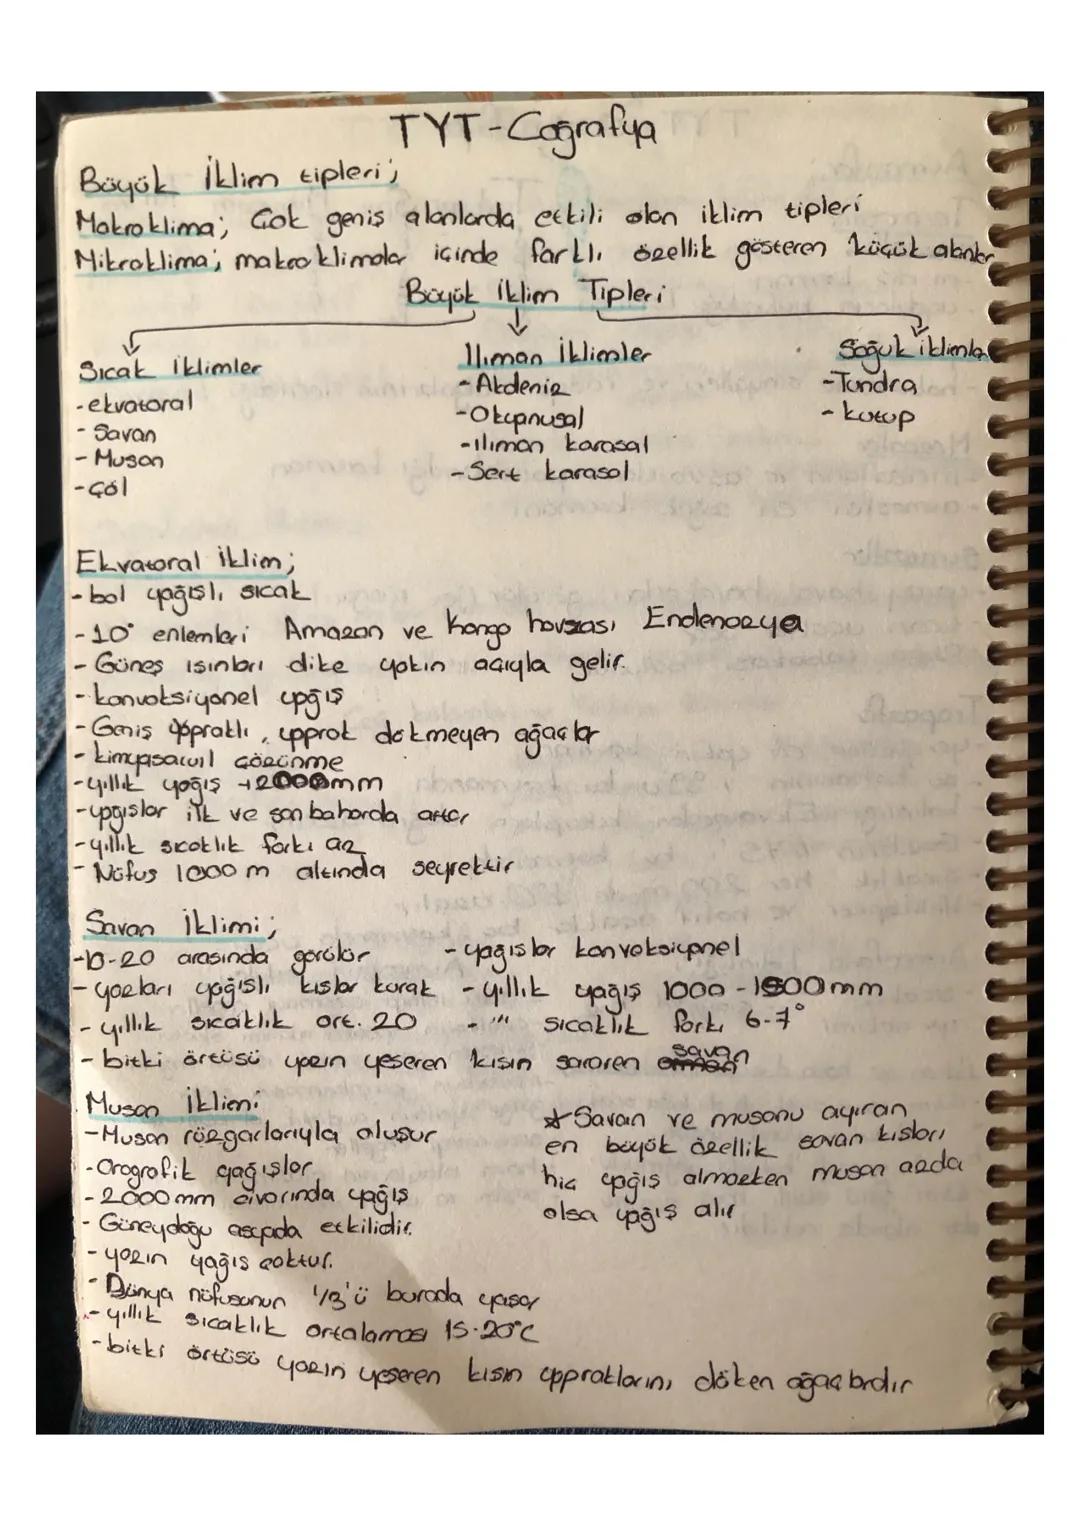 TYT-Coğrafya
Büyük İklim tipleri;
Makroklima; Çok geniş alanlarda etkili olan iklim tipleri
Mikroklima; makroklimalar içinde farklı özellik gösteren küçük alanlar
Büyük İklim Tipleri
Sıcak iklimler
-ekvatoral
- Savan
- Muson
-Çöl
Ilıman İklimler
-Akdeniz
-Okyanusal
-ılıman karasal
-Sert karasal
Soğuk iklimler
-Tundra
- kutup
Ekvatoral İklim;
-bol yağışlı, sıcak
-10° enlemleri Amazon ve Kongo havzası Endenozya
- Güneş ışınları dike yakın açıyla gelir.
-konvoksiyonel yağış
-Geniş yapraklı, yaprak dökmeyen ağaçlar
- kimyasawıl çözünme
-yıllık yağış +2000mm
-yağışlar ilk ve son baharda artar
-yıllık sıcaklık farkı az
- Nüfus 1000 m altında seyrektir
Savan İklimi;
-10-20 arasında görülür
- yazları yağışlı kışlar kurak
- yıllık sıcaklık ort. 20
- bitki örtüsü yazın yeşeren kışın sararen savan
- yağışlar konveksiyonel
-yıllık yağış 1000-1500mm
- "" sıcaklık farkı 6-7°
Muson İklimi
-Muson rüzgarlarıyla oluşur
-Orografik yağışlar
- 2000 mm civarında yağış
- Güneydoğu asyada etkilidir.
- yazın yağış çoktur.
- Dünya nüfusunun 1/3'ü burada yaşar
- yıllık sıcaklık ortalaması 15-20°C
-bitki örtüsü yazın yeşeren kışın yapraklarını döken ağaçlardır
☆ Savan ve musonu ayıran
en büyük özellik savan kışları
hiç yağış almazken muson azda
olsa yağış alır